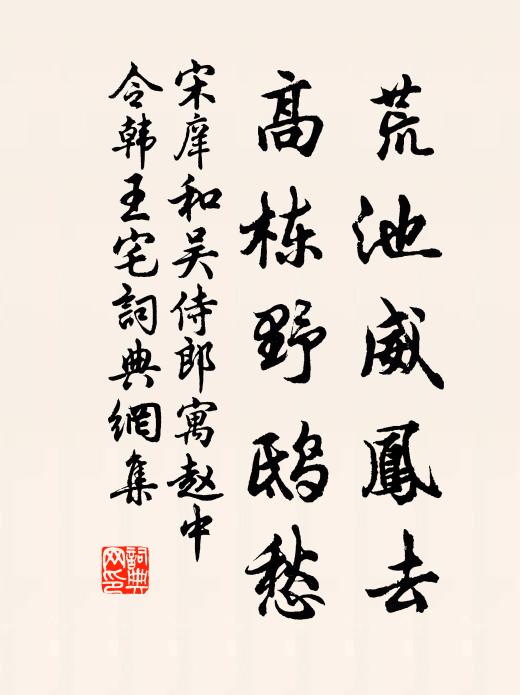 荒池威鳳去
高栋野鸱愁
宋庠和吴侍郎寓赵中
令韩王宅詞典網集
詞典网印